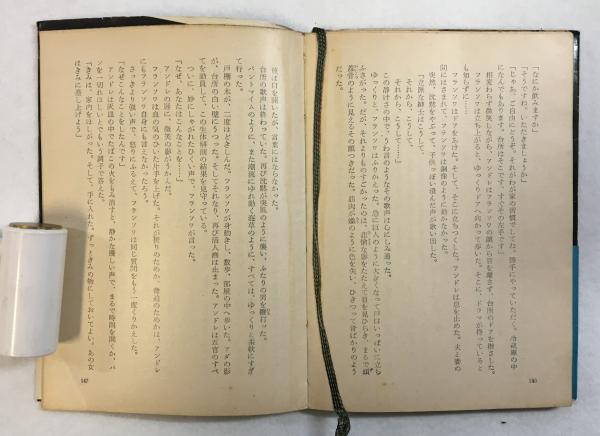 「なにか飲みますか」
「そうですね。いただきましょうか」
「じゃあ、ご自由にどうぞ。それがわが家の習慣でしてね。勝手にやっていただく。冷蔵庫の中
になんでもあります。台所はそこです。すぐその左手です」
相変わらず微笑しながら、アンドレはフランソワの顔から目を離さず、台所のドアを指さした。
フランソワは立ち上がると、ゆっくりドアへ向かって歩いた。そこに、ドラマが待っていると
も知らずに。
フランソワはドアをあけた。そして、そこに立ちつくした。アンドレは息を止めた。夫と妻の
間にはさまれて、フランソワは銅像のように動かなかった。
突然、沈黙をやぶって、子供っぽい澄んだ声が歌い出した。
「立派な紳士は、こうして、
それから、こうして、
それから、こうして……」
この静けさの中で、うわ言のようなその歌声は心にしみ通った。
ゆっくりと、フランソワはふりかえった。急に巨人のように大きくなって戸口いっぱいに立ち
ふさがった。だが、それよりものすごかったのは、悲愴な影をたたえて目を見ひらき、まるで
蓋骨のように見えるその顔つきだった。筋肉が蠟のように色を失い、ひきつって骨ばかりのよう
だった。
140
彼は口を開いたが、言葉にはならなかった。
台所の歌声は終わっていた。再び沈黙が突風のように襲い、ふたりの男を
パントマイムのように、また潮流にゆれ動く海草のように、すべては、ゆっくりと柔軟にすぎ
て行った。
戸棚の木が、二度ほどきしんだ。フランソワが身動きし、数歩、部屋の中へ歩いた。アダの影
が、台所の白い壁にうつった。そしてそれなり、再び活人画は止まった。アンドレは五官のすべ
てを動員して、この生体解剖の結果を見守っている。
ついに、妙にしゃがれたひくい声で、フランソワが言った。
「なぜ、あなたはこんなことを……」
アンドレの顔に、微笑の影がうかんだ。
フランソワは血の気のひいた片手を上げた。それが祈りのためか、脅迫のためかは、アンドレ
にもフランソワ自身にも言えなかったろう。
さっきより強い声で、怒りにふるえて、フランソワは同じ質問をもう一度くりかえした。
「なぜこんなことをしたんです」
アンドレは灰皿の中でたばこの火をもみ消すと、静かな優しい声で、まるで時間を聞くか、パ
ンを一切れほしいとでもいう調子で答えた。
「きみは、家内をほしがった。そして、手に入れた。ずっときみの物にしておいてよい。あの女
はきみに差し上げよう」
147